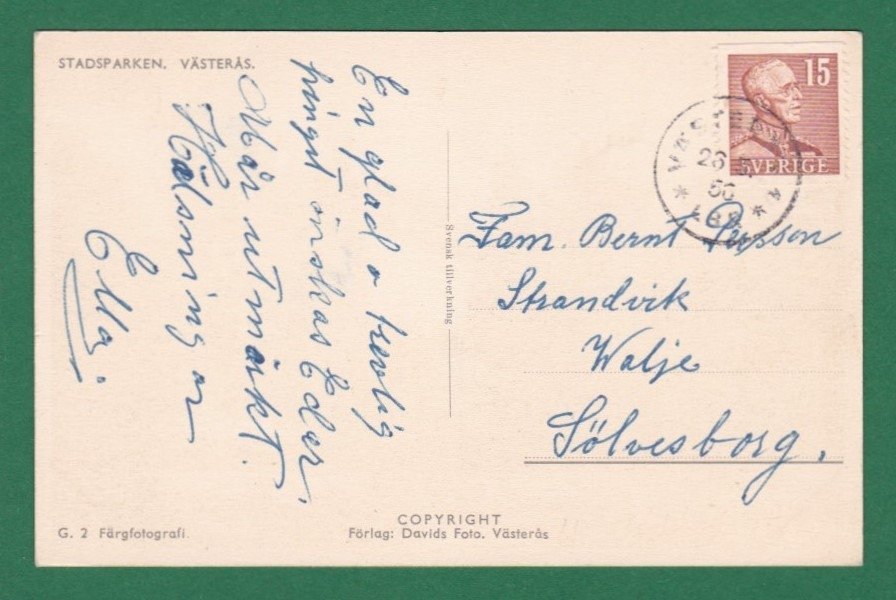 STADSPARKEN. VÄSTERÅS.
En glad o trevlig
pingst önskas Eder.
Mår utmärkt.
Hälsningar
Ella.
Svensk tillverkning
15
SVERIGE
VÄSTERÅS
26
50
LBR
4
Fam. Bernt Persson
Strandvik
Walje
Sölvesborg.
G. 2 Färgfotografi
COPYRIGHT
Förlag: Davids Foto. Västerås